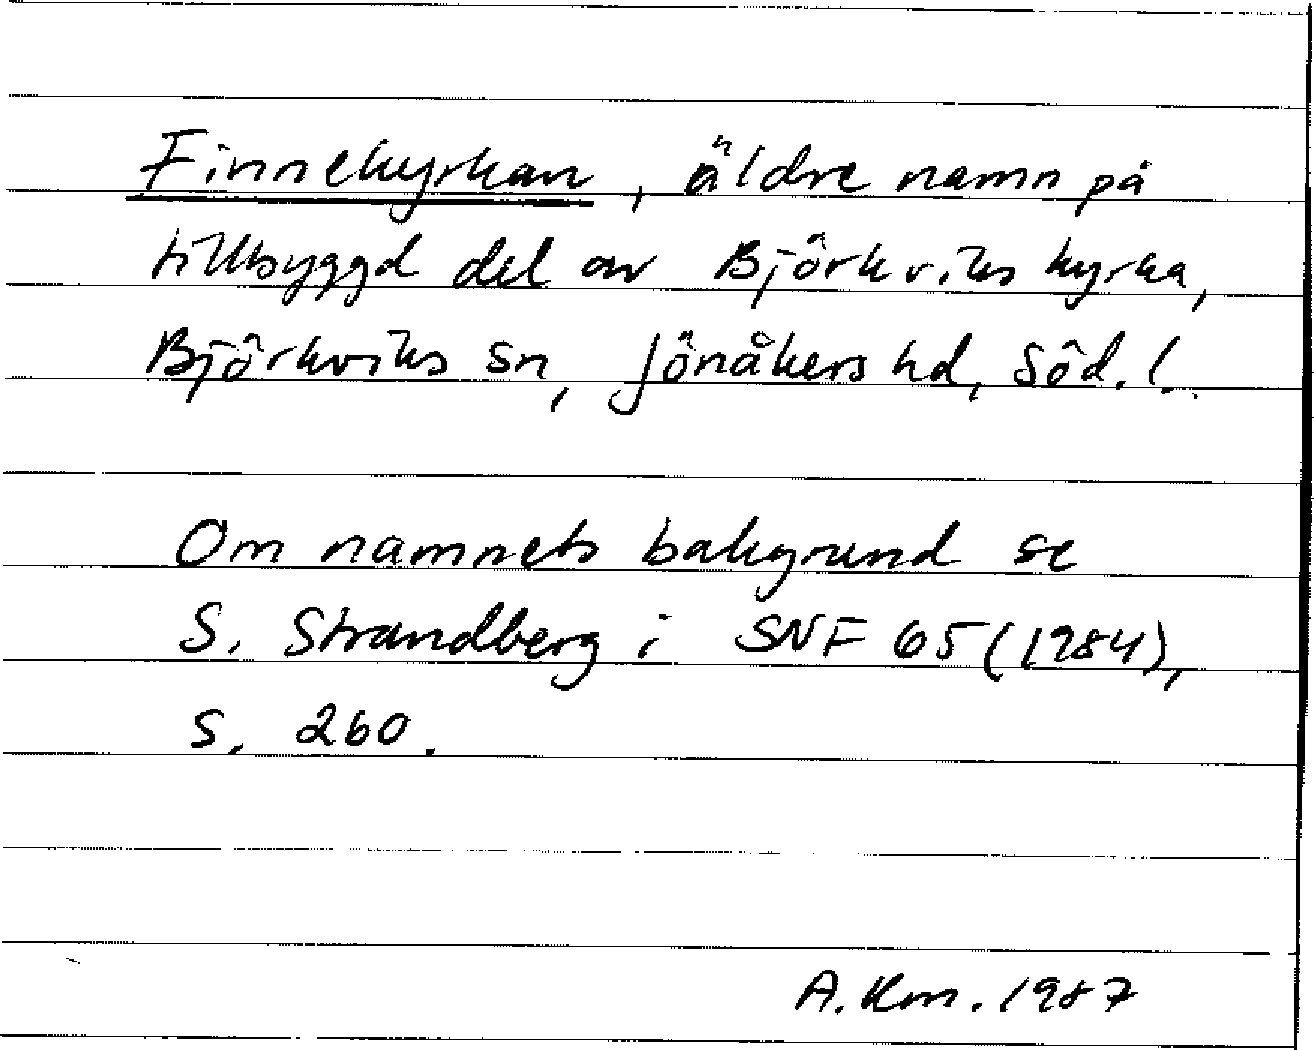 Finnekyrkan, äldre namn på
tillbyggd del av Björkviks kyrka,
Björkviks sn, Jönåkers hd, Söd. l.
Om namnets bakgrund se
S. Strandberg i SNF 65 (1984),
s. 260.
A. Km. 1987